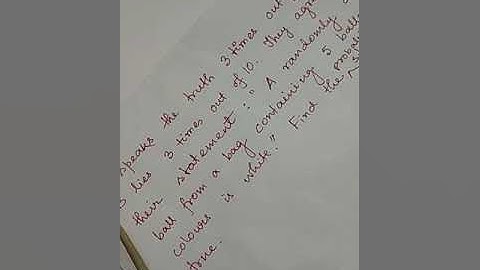 speaks the truth 3 times out
lies 3 times out of 10. They
their statement : " A randomly
ball from a bag containing 5
colours is white." Find the
true.